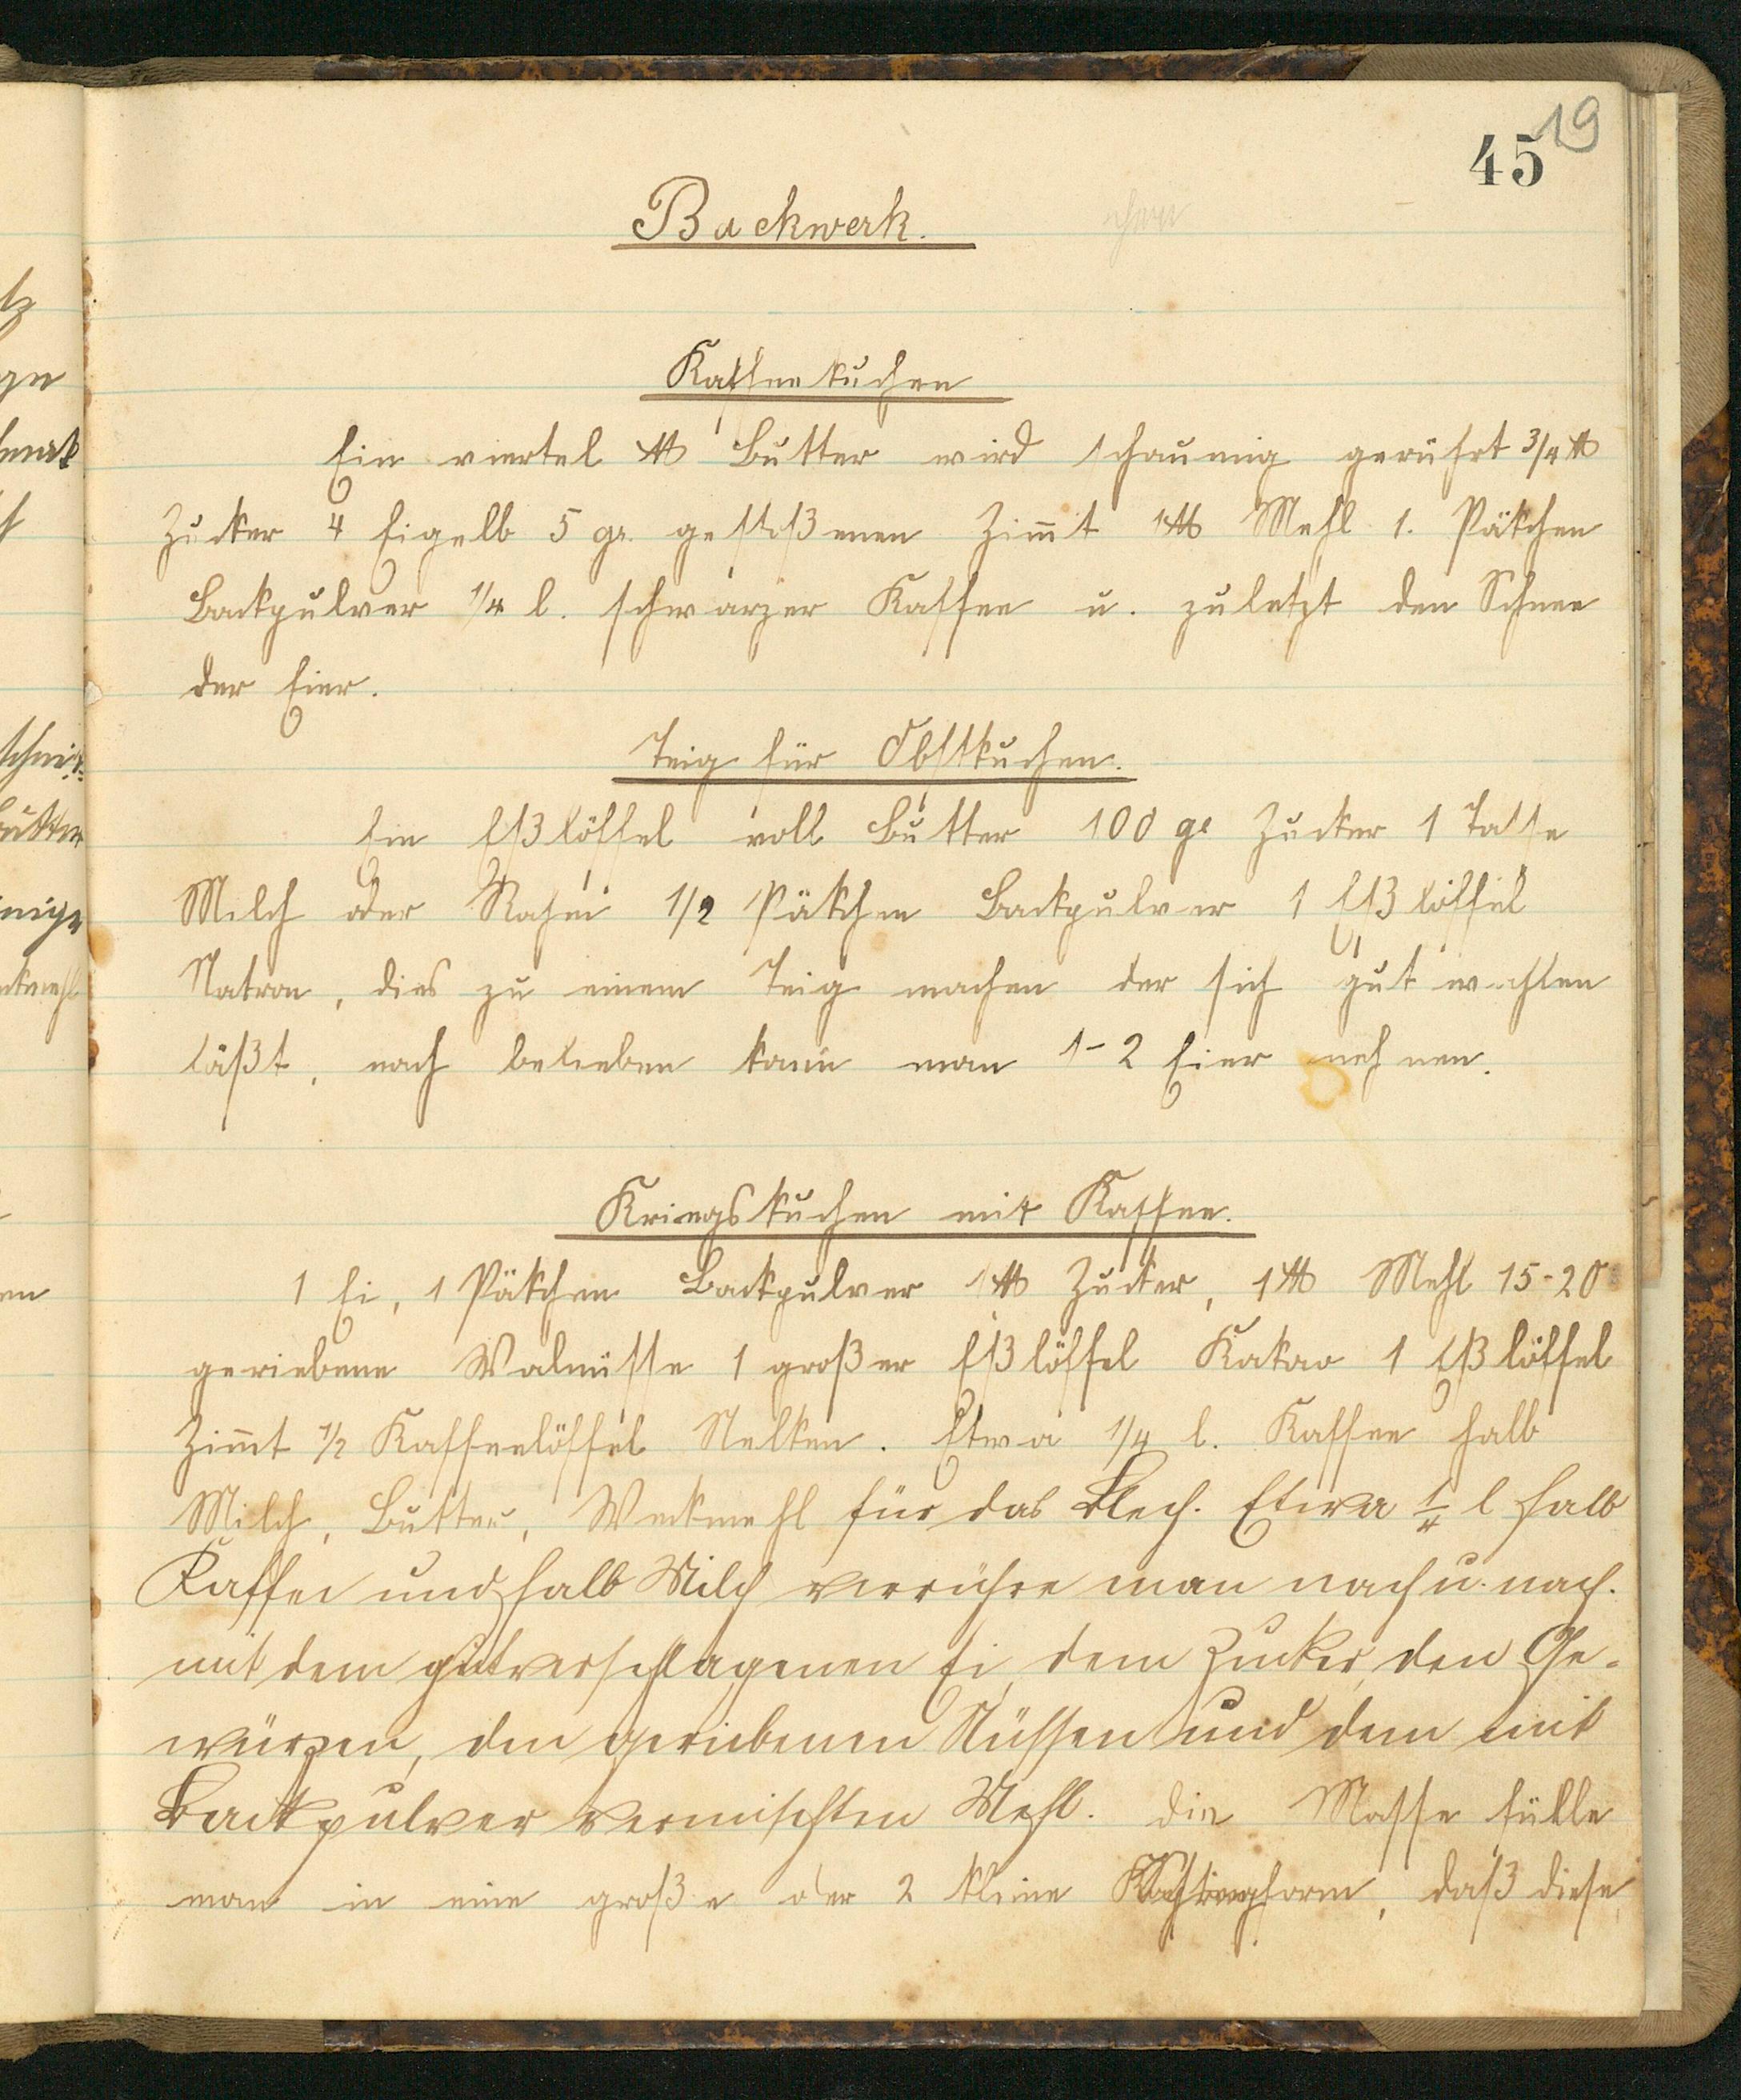 19
45
Backwerk.
Kaffeekuchen
Ein viertel ℔ Butter wird schaumig gerührt 3/4 ℔
Zucker 4 Eigelb 5 gr. gestoßenen Zim̄t 1 ℔ Mehl 1. Päkchen
Backpulver 1/4 l. schwarzer Kaffee u. zuletzt den Schnee
der Eier.
Teig für Obstkuchen.
Ein Eßlöffel voll Butter 100 gr Zucker 1 Tasse
Milch oder Rahm 1/2 Päkchen Backpulver 1 Eßlöffel
Natron, dies zu einem Teig machen der sich gut
läßt, nach belieben kann man 1-2 Eier nehmen.
Kriegskuchen mit Kaffee.
1 Ei, 1 Päkchen Backpulver 1 ℔ Zucker, 1 ℔ Mehl 15-20
geriebene Walnüsse 1 großer Eßlöffel Kakao 1 Eßlöffel
Zim̄t 1/2 Kaffeelöffel Nelken. Etwa 1/4 l. Kaffee halb
Milch, Butter, Weckmehl für das Blech. Etwa 1/4 l halb
Kaffee und halb Milch verrühre man nach u. nach.
mit dem gutverschlagenen Ei, dem Zucker, den Ge-
würzen, den geriebenen Nüssen und dem mit
Backpulver vermischten Mehl. Die Masse fülle
man in eine große oder 2 kleine , daß diese